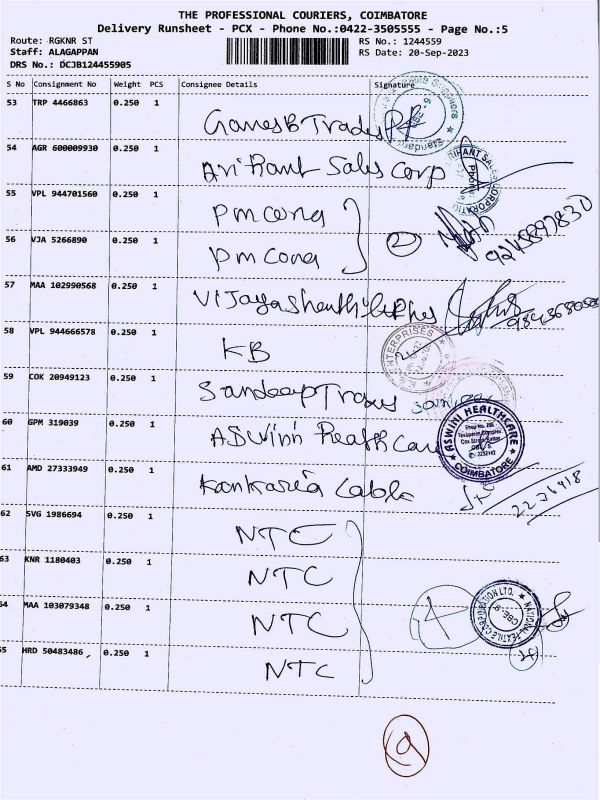 THE PROFESSIONAL COURIERS, COIMBATORE
Delivery Runsheet - PCX - Phone No.:0422-3505555 - Page No.:5
Route: RGKNR ST RS No.: 1244559
Staff: ALAGAPPAN RS Date: 20-Sep-2023
DRS No.: DCJB124455905
S No Consignment No Weight PCS Consignee Details Signature
53 TRP 4466863 0.250 1
54 AGR 600009930 0.250 1 Arihant Sales Corp
55 VPL 944701560 0.250 1 pmcona
56 VJA 5266890 0.250 1 pmcona
2
57 MAA 102990568 0.250 1
58 VPL 944666578 0.250 1 KB
59 COK 20949123 0.250 1 Sandeep
60 GPM 319039 0.250 1 Aswini Health Care
ASWINI HEALTHCARE
COIMBATORE
61 AMD 27333949 0.250 1 Kankaria Cable
62 SVG 1986694 0.250 1 NTC
63 KNR 1180403 0.250 1 NTC
64 MAA 103079348 0.250 1 NTC
NATIONAL TEXTILE CORPORATION LTD.
CBE-9
65 HRD 50483486 0.250 1 NTC
9